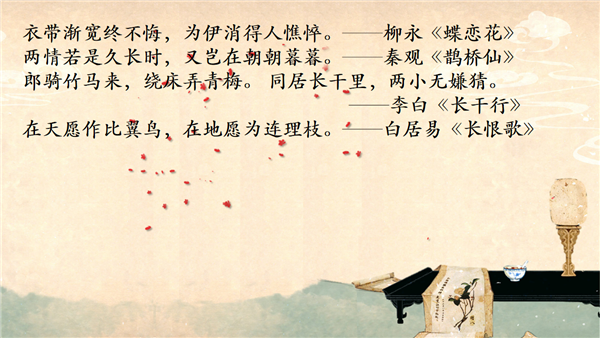 衣带渐宽终不悔，为伊消得人憔悴。——柳永《蝶恋花》
两情若是久长时，又岂在朝朝暮暮。——秦观《鹊桥仙》
郎骑竹马来，绕床弄青梅。 同居长干里，两小无嫌猜。
——李白《长干行》
在天愿作比翼鸟，在地愿为连理枝。——白居易《长恨歌》